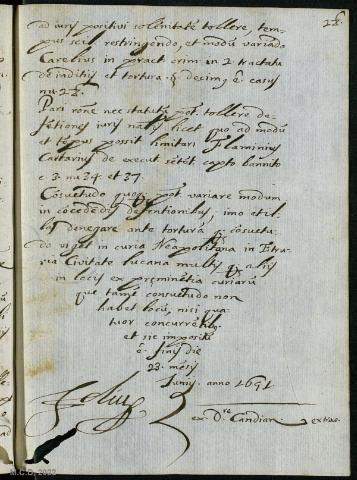 22.
ad iuris positivi solenitatē tollere, tem-
pus scil. restringendo, et modū variādo
Carelius in pract. crim. in 2. tractatu
de inditijs et tortura § decimę casus
nu. 22.
Pari rōne nec statutū pōt. tollere de-
fētiones iuris nālis licet quo ad modū
et tēpus possit limitari Flaminius
Cartarius de execut. sētēt. capto bannito
c. 3. nu. 34. et 37.
Cōsuetudo quoq. pōt variare modum
in cōcedēdis defentionibus, imo etiā
denegare ante torturā cōsuetu
do viget in curia Neapolitana in
Civitate lucana multis alijs
in locis ex pręminētia curiarū
que tamē consuetudo non
habet locū, nisi qua
tuor concurrētibꝰ
et sic imporitur
ē. finis die
23. mēsis
Junij. anno 1691
ex D.re Candian. extrac.
M.C.D. 2022